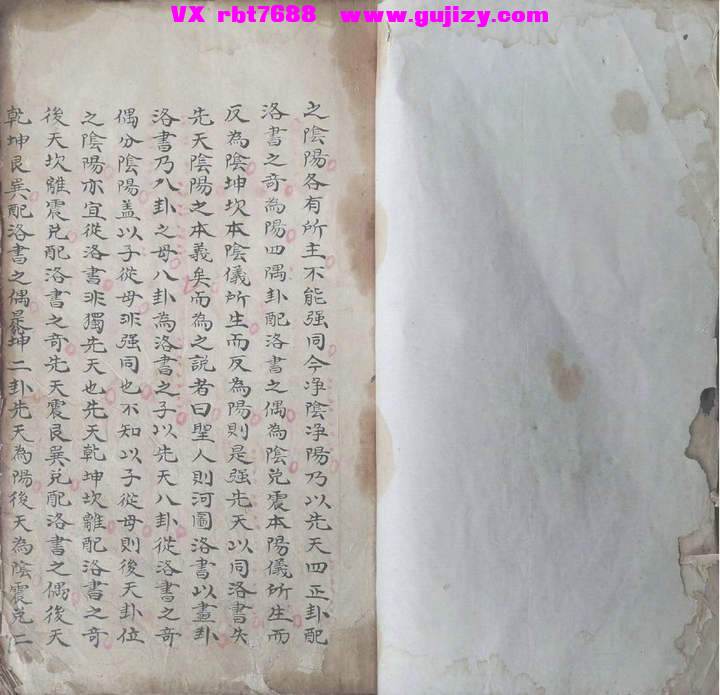 VX rbt7688 www.gujizy.com
之陰陽各有所主不能强同今净陰净陽乃以先天四正卦配
洛書之奇為陽四隅卦配洛書之偶為陰兌震本陽儀所生而
反為陰坤坎本陰儀所生而反為陽則是强先天以同洛書失
先天陰陽之本義矣而為之説者曰聖人則河圖洛書以畫卦
洛書乃八卦之母八卦為洛書之子以先天八卦從洛書之奇
偶分陰陽盖以子從母非强同也不知以子從母則後天卦位
之陰陽亦宜從洛書非獨先天也先天乾坤坎離配洛書之奇
後天坎離震兌配洛書之奇先天震艮巽兌配洛書之偶後天
乾坤艮巽配洛書之偶坤二卦先天為陽後天為陰震兌二